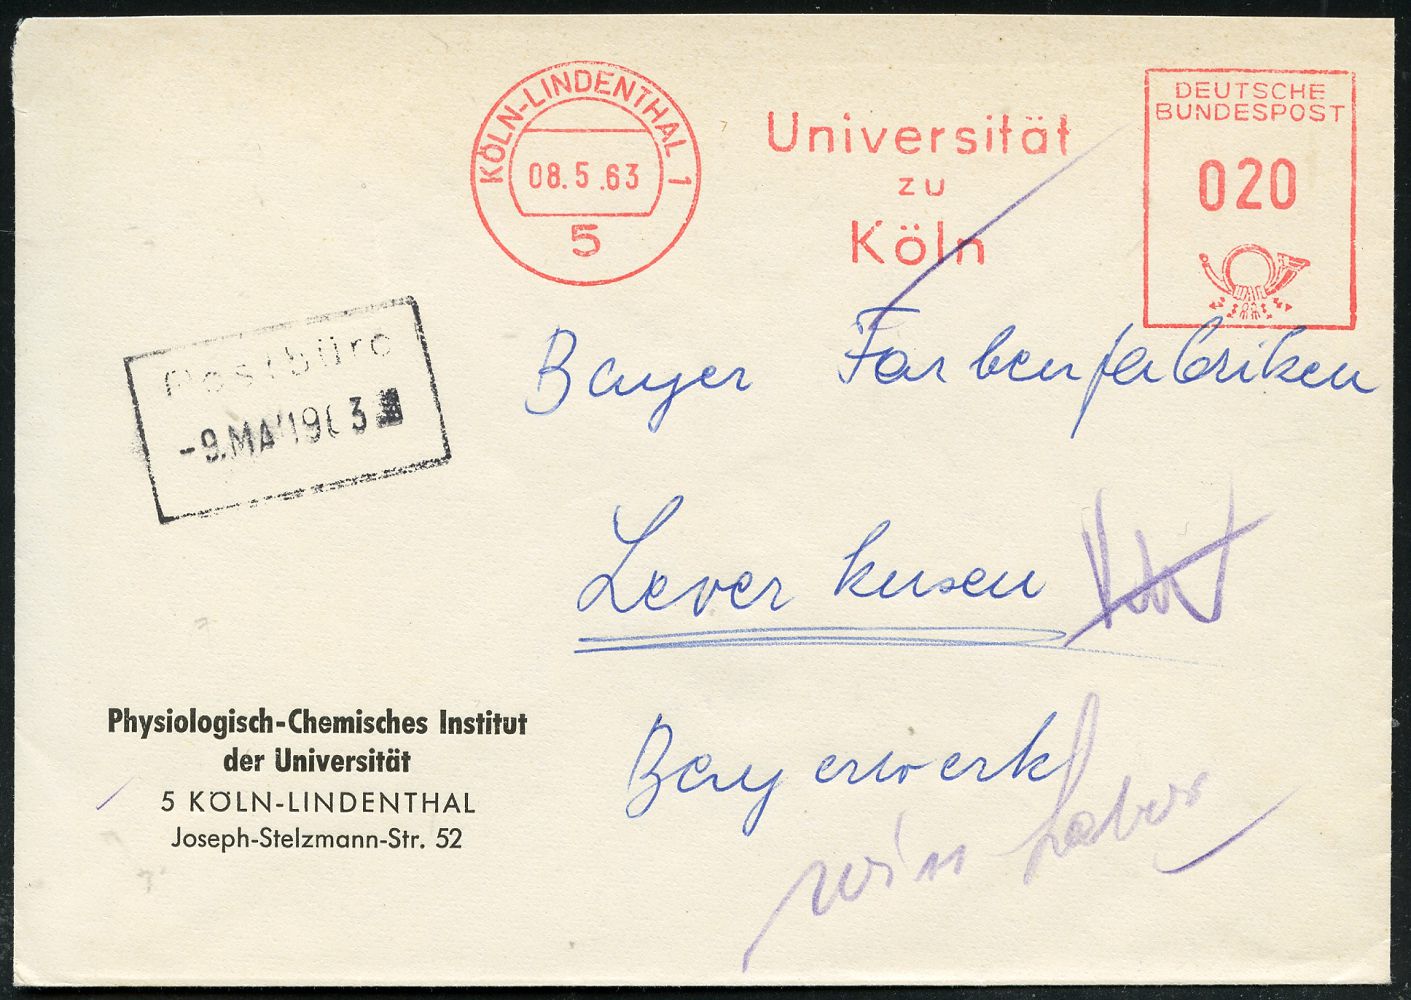 KÖLN-LINDENTHAL 1
08.5.63
5
Universität
zu
Köln
DEUTSCHE
BUNDESPOST
020
Postbüro
-9.MAI 1963
Bayer Farbenfabriken
Leverkusen
Bayerwerk
Physiologisch-Chemisches Institut
der Universität
5 KÖLN-LINDENTHAL
Joseph-Stelzmann-Str. 52